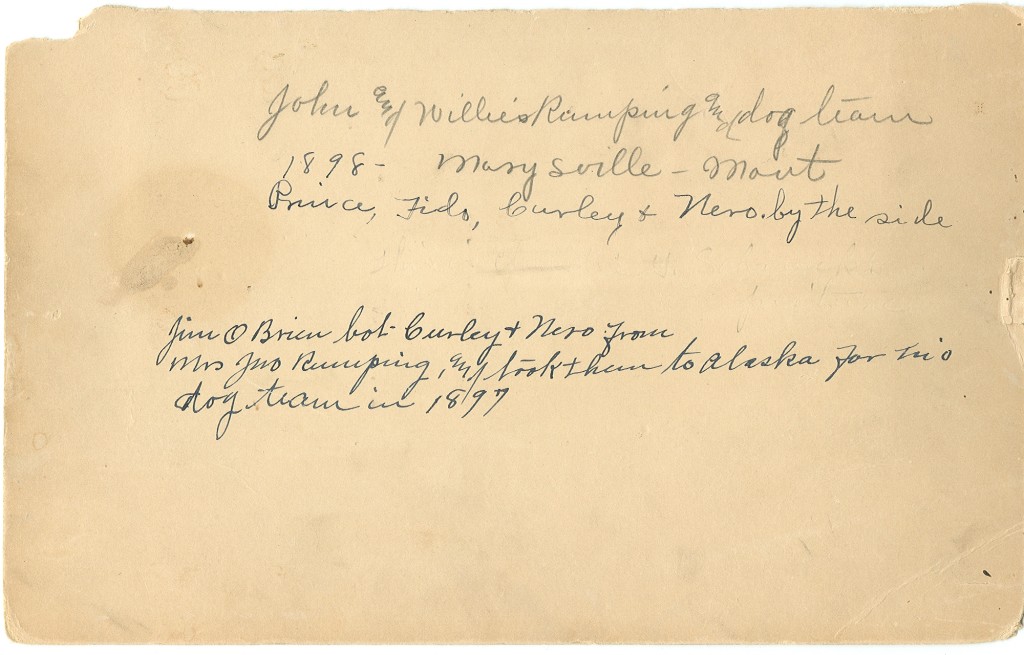 John and Willie's Ramping and dog team
1898- Marysville - Mont
Prince, Fido, Curley & Nero. by the side
Jim O Brien bot Curley & Nero from
Mrs Jno Ramping, and took them to Alaska for his
dog team in 1897